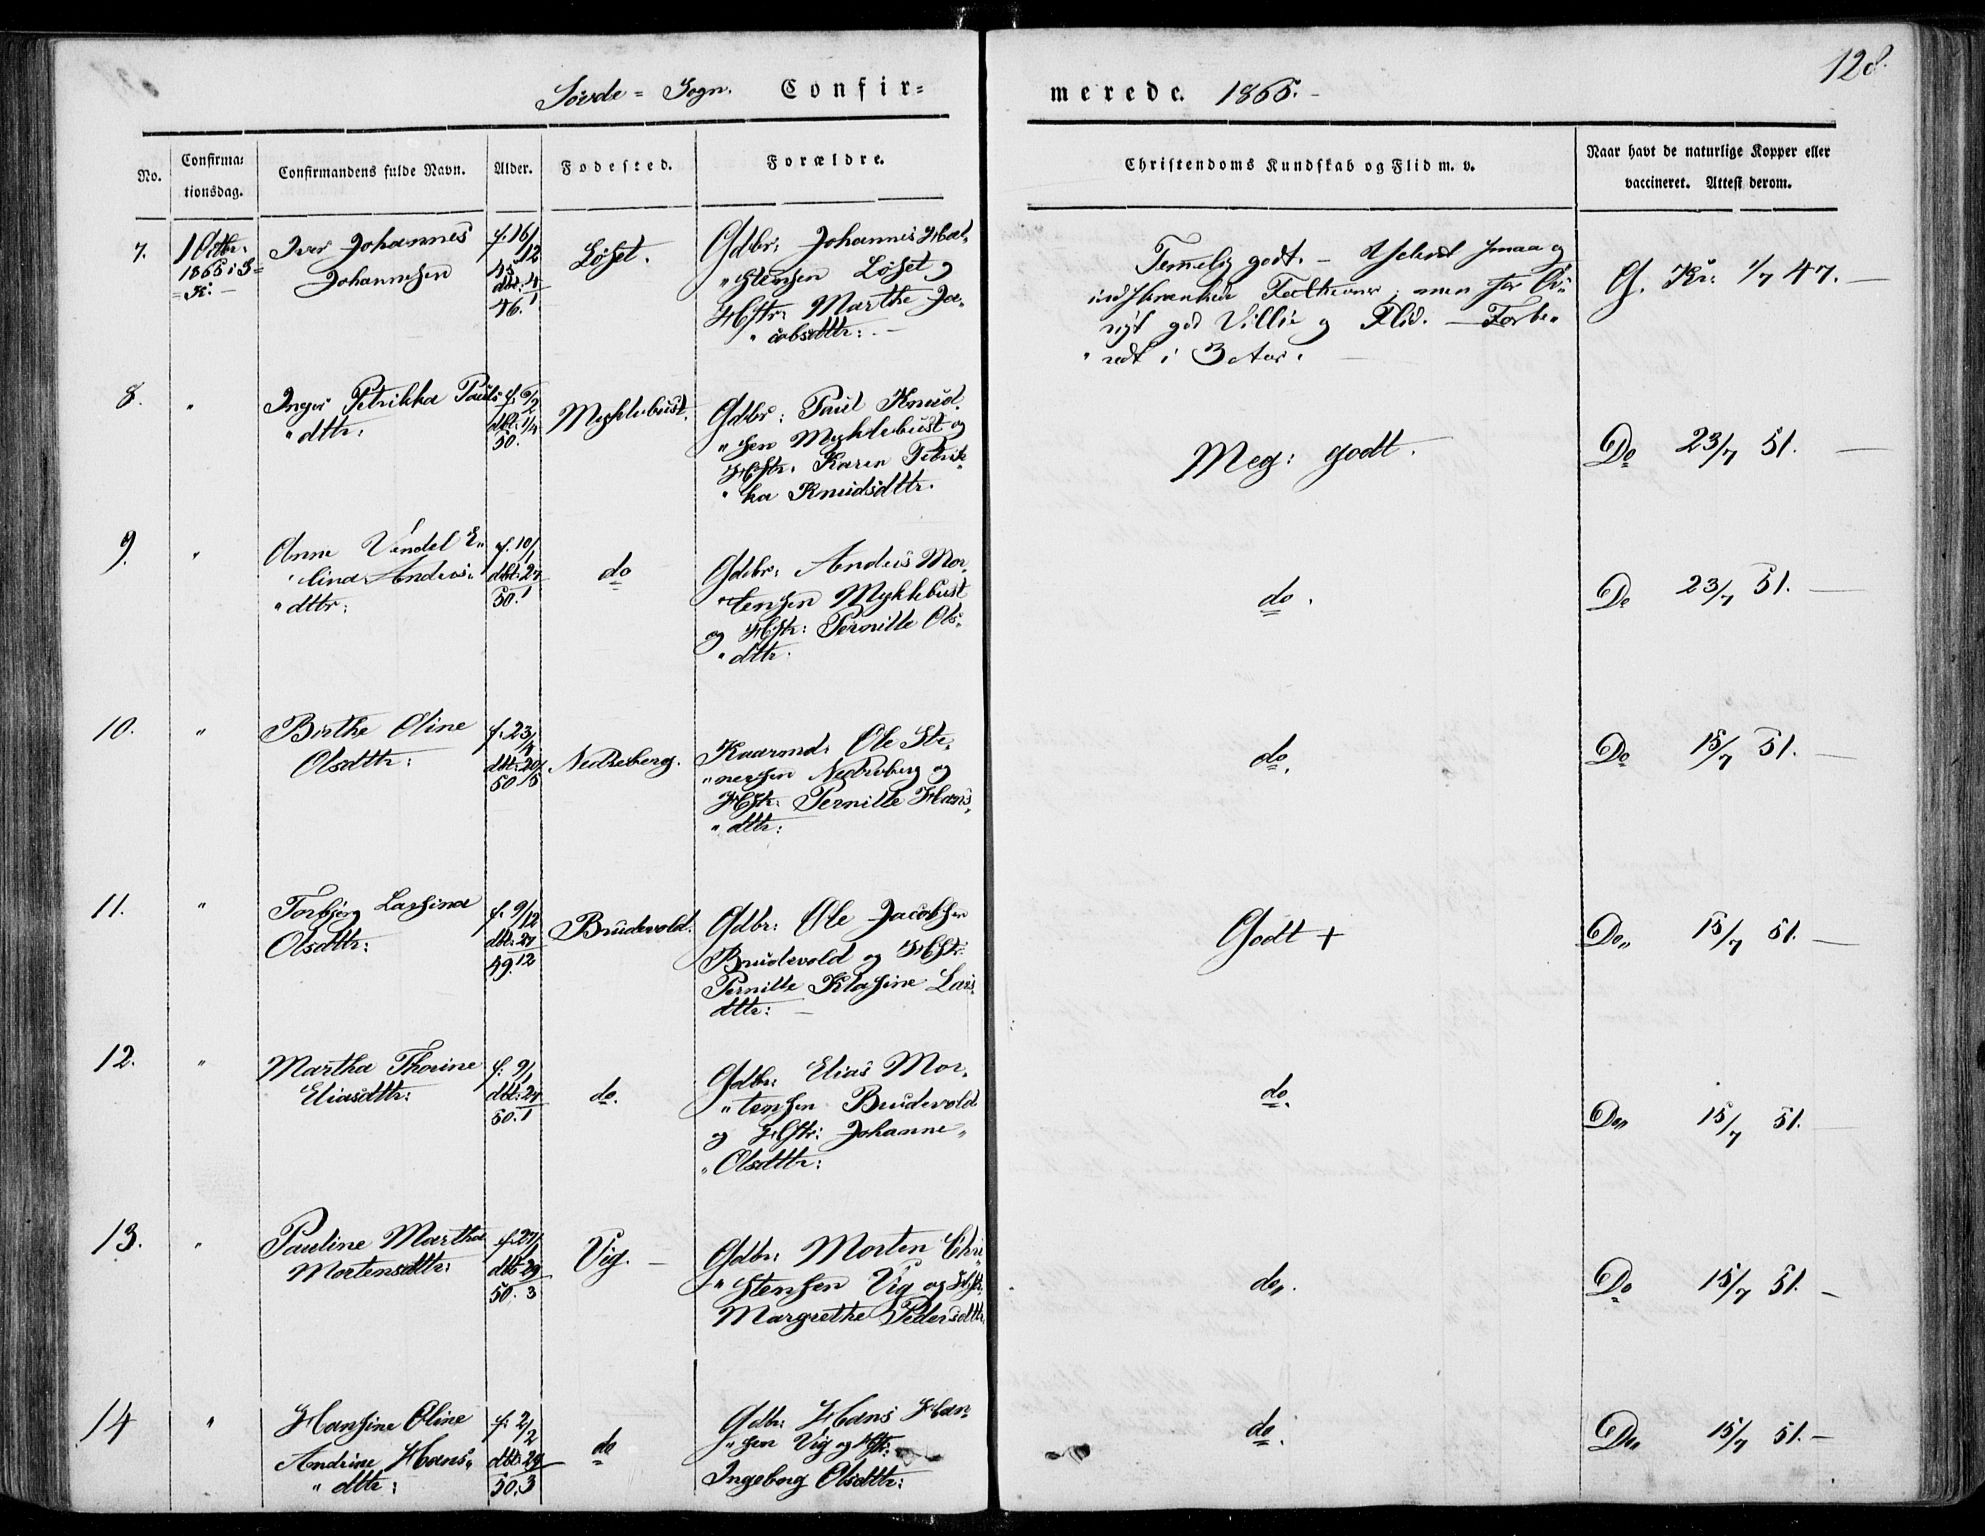 128.
Sövde = Sogn. Confir=
merede. 1865.-
No.
Confirma=
tionsdag.
Confirmandens fulde Navn.
Alder.
Fødested.
Forældre.
Christendoms Kundskab og Flid m. v.
Naar havt de naturlige Kopper eller
vaccineret. Attest derom.
7.
1 Octbr:
1865 i S=
=K: -
Iver Johannes
Johannesen
f. 16/12
45
dbt: 4/1
46.
Løset.
Gdbr: Johannes Hal=
"stensen Løset og
Hstr: Marthe Ja=
"cobsdttr: -
Temmelig godt. - smaa og
indskrænkede men for Øv=
rigt god Villie og Flid. - Forbe=
"redt i 3 Aar. -
G. Kr: 1/7 47. -
8.
"
Inger Petrikka Pauls=
"dttr:
f. 6/2
dbt: 1/4
50.
Myklebust.
Gdbr: Paul Knud=
"sen Myklebust og
Hstr: Karen Petrik=
"ka Knudsdttr.
Meg: godt.
Do 23/7 51. -
9.
"
Anne Vendel E=
"lina Anders=
"dttr:
f. 10/1
dbt: 27/1
50.
do
Gdbr: Anders Mor=
"tensen Myklebust
og Hstr: Pernille Ols=
"dttr.
do.
Do 23/7 51. -
10.
"
Birthe Oline
Olsdttr:
f. 23/4
dbt: 20/5
50
Nedreberg.
Kaarmd: Ole Ste=
"nersen Nedreberg og
Hstr: Pernille Hans=
"dttr:
do.
Do 15/7 51. -
11.
"
Torbjørg Larsine
Olsdttr:
f. 9/12
dbt: 27/12
49.
Brudevold.
Gdbr: Ole Jacobsen
Brudevold og Hstr:
Pernille Klasine Lars=
dttr: -
Godt +
Do" 15/7 51. -
12.
"
Martha Thorine
Eliasdttr:
f. 9/1
dbt: 27/1
50.
do.
Gdbr: Elias Mor=
"tensen Brudevold
og Hstr: Johanne
"Olsdttr:
do.
Do" 15/7 51. -
13.
"
Pauline Martha
Mortensdttr:
f. 27/1
dbt 29/3
50.
Vig. -
Gdbr: Morten Chri=
"stensen Vig og Hstr:
Margrethe Pedersdttr.
do".
Do 15/7 51. -
14
"
Hansine Oline
Andrine Hans=
"dttr:
f: 2/2
dbt: 29/3
50.
do
Gdbr: Hans Han=
"sen Vig og Hstr:
Ingeborg Olsdttr:
do.
Do 15/7 51. -